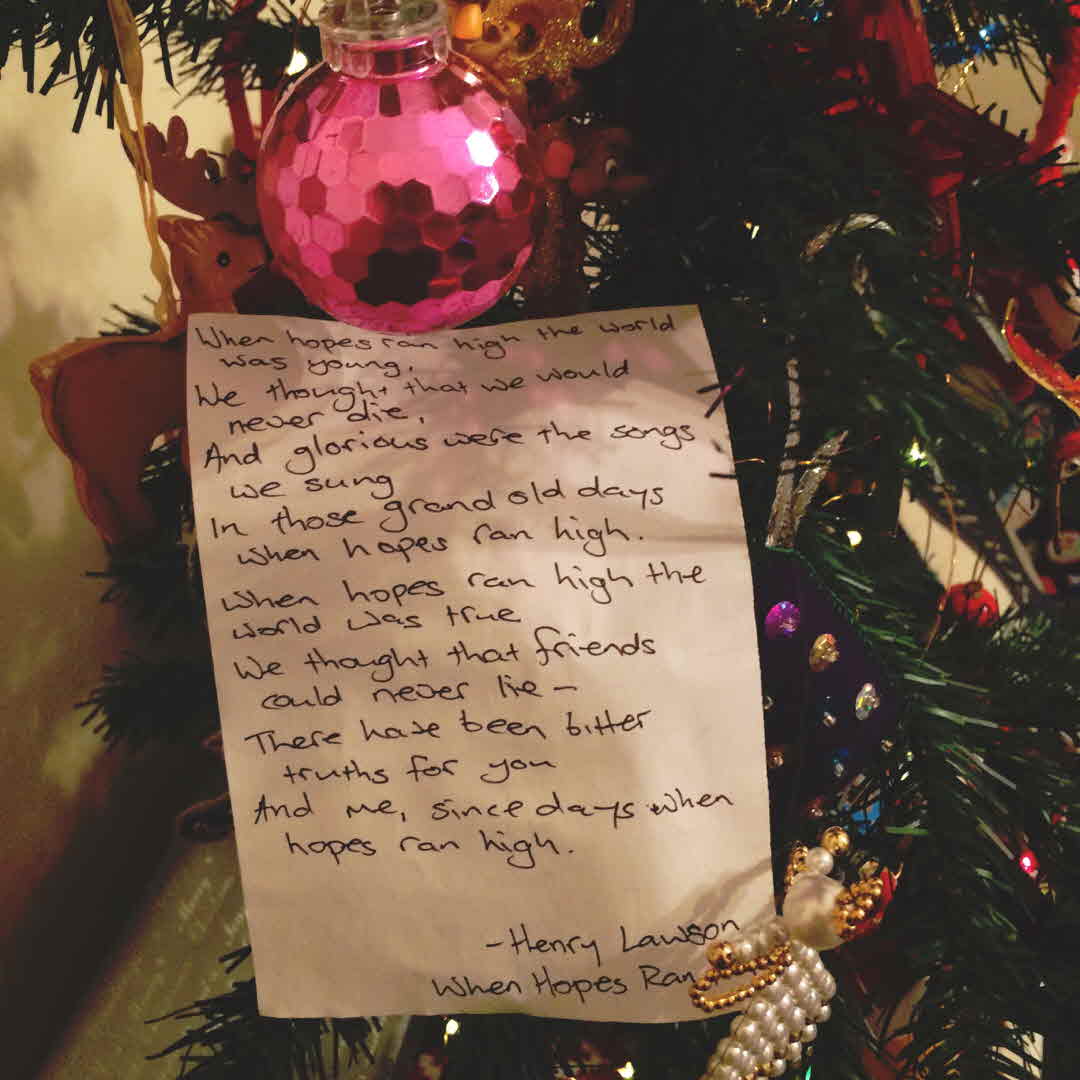 When hopes ran high the world
was young,
We thought that we would
never die,
And glorious were the songs
we sung
In those grand old days
when hopes ran high.
When hopes ran high the
world was true
We thought that friends
could never lie -
There have been bitter
truths for you
And me, since days when
hopes ran high.
- Henry Lawson
When Hopes Ran